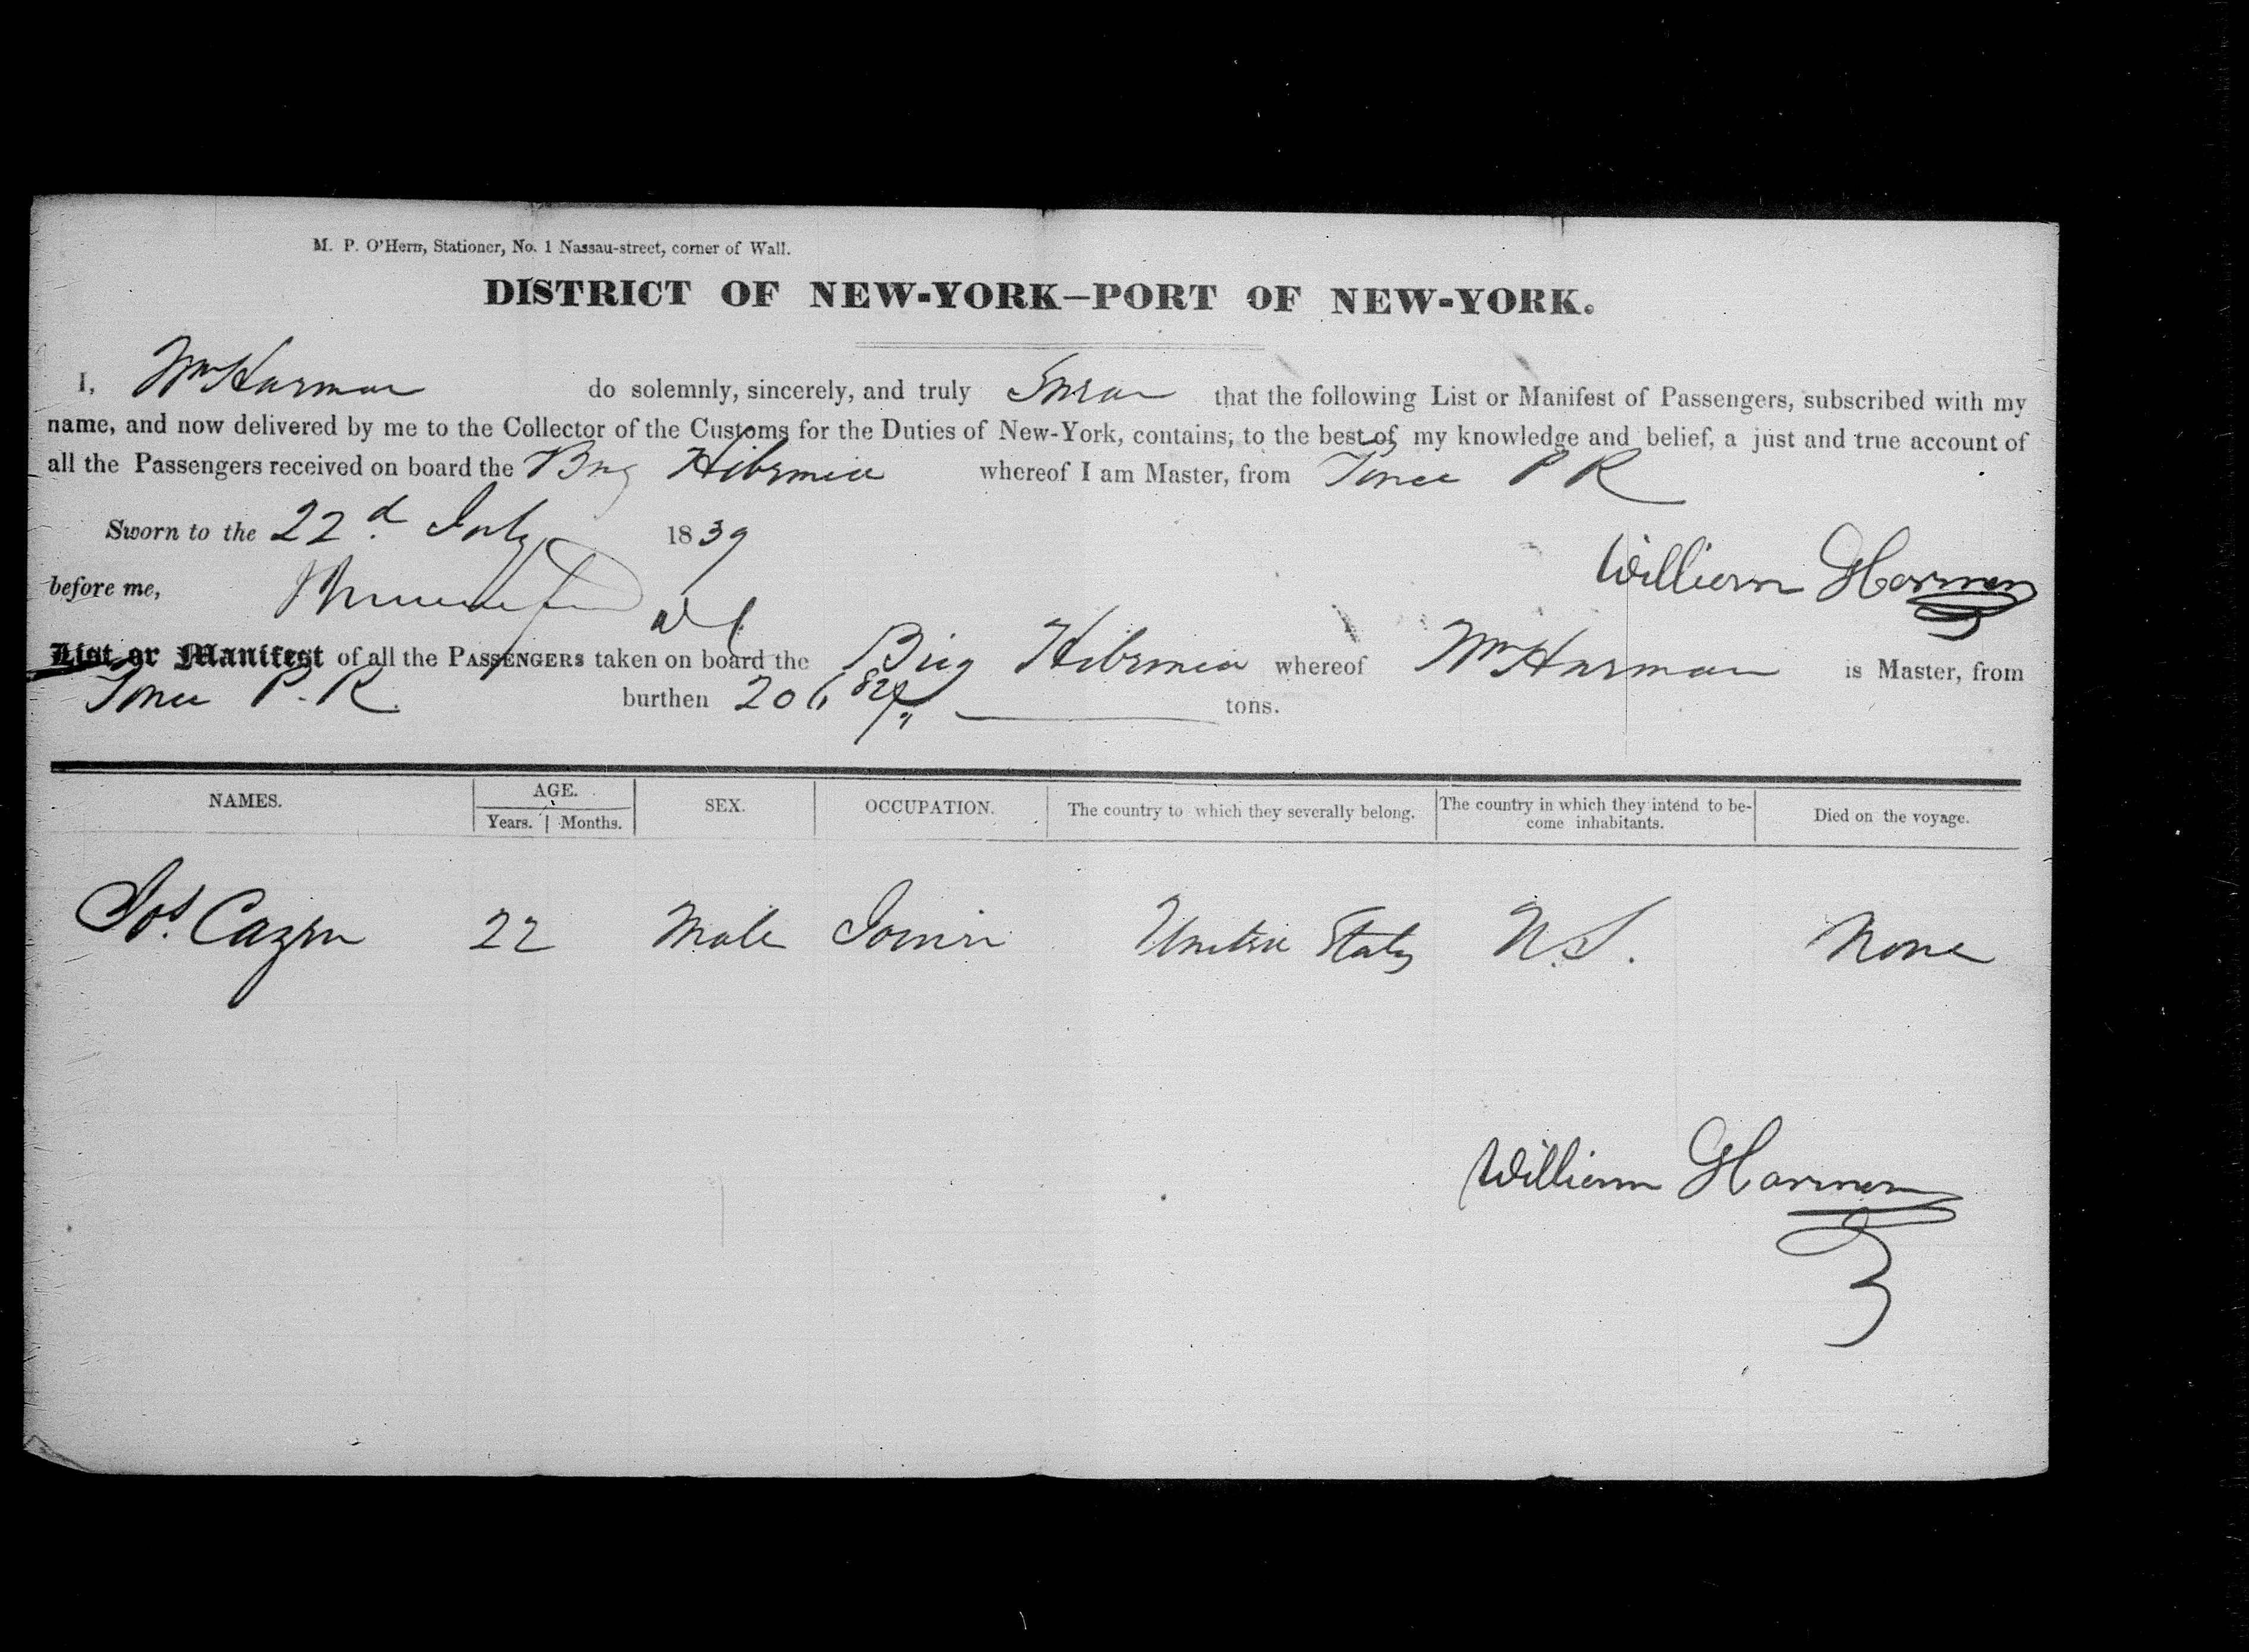 M. P. O'Hern, Stationer, No. 1 Nassau-street, corner of Wall.
DISTRICT OF NEW-YORK—PORT OF NEW-YORK.
I, Wm Harman do solemnly, sincerely, and truly Swear that the following List or Manifest of Passengers, subscribed with my
name, and now delivered by me to the Collector of the Customs for the Duties of New-York, contains, to the best of my knowledge and belief, a just and true account of
all the Passengers received on board the Brig Hibernia whereof I am Master, from Ponce P R
Sworn to the 22d July 1839
William Harman
before me,
List or Manifest of all the PASSENGERS taken on board the Brig Hibernia whereof Wm Harman is Master, from
Ponce P. R. burthen 206 tons.
NAMES. AGE. SEX. OCCUPATION. The country to which they severally belong. The country in which they intend to be- Died on the voyage.
Years. Months. come inhabitants.
Jos. 22 Male United States None
William Harman